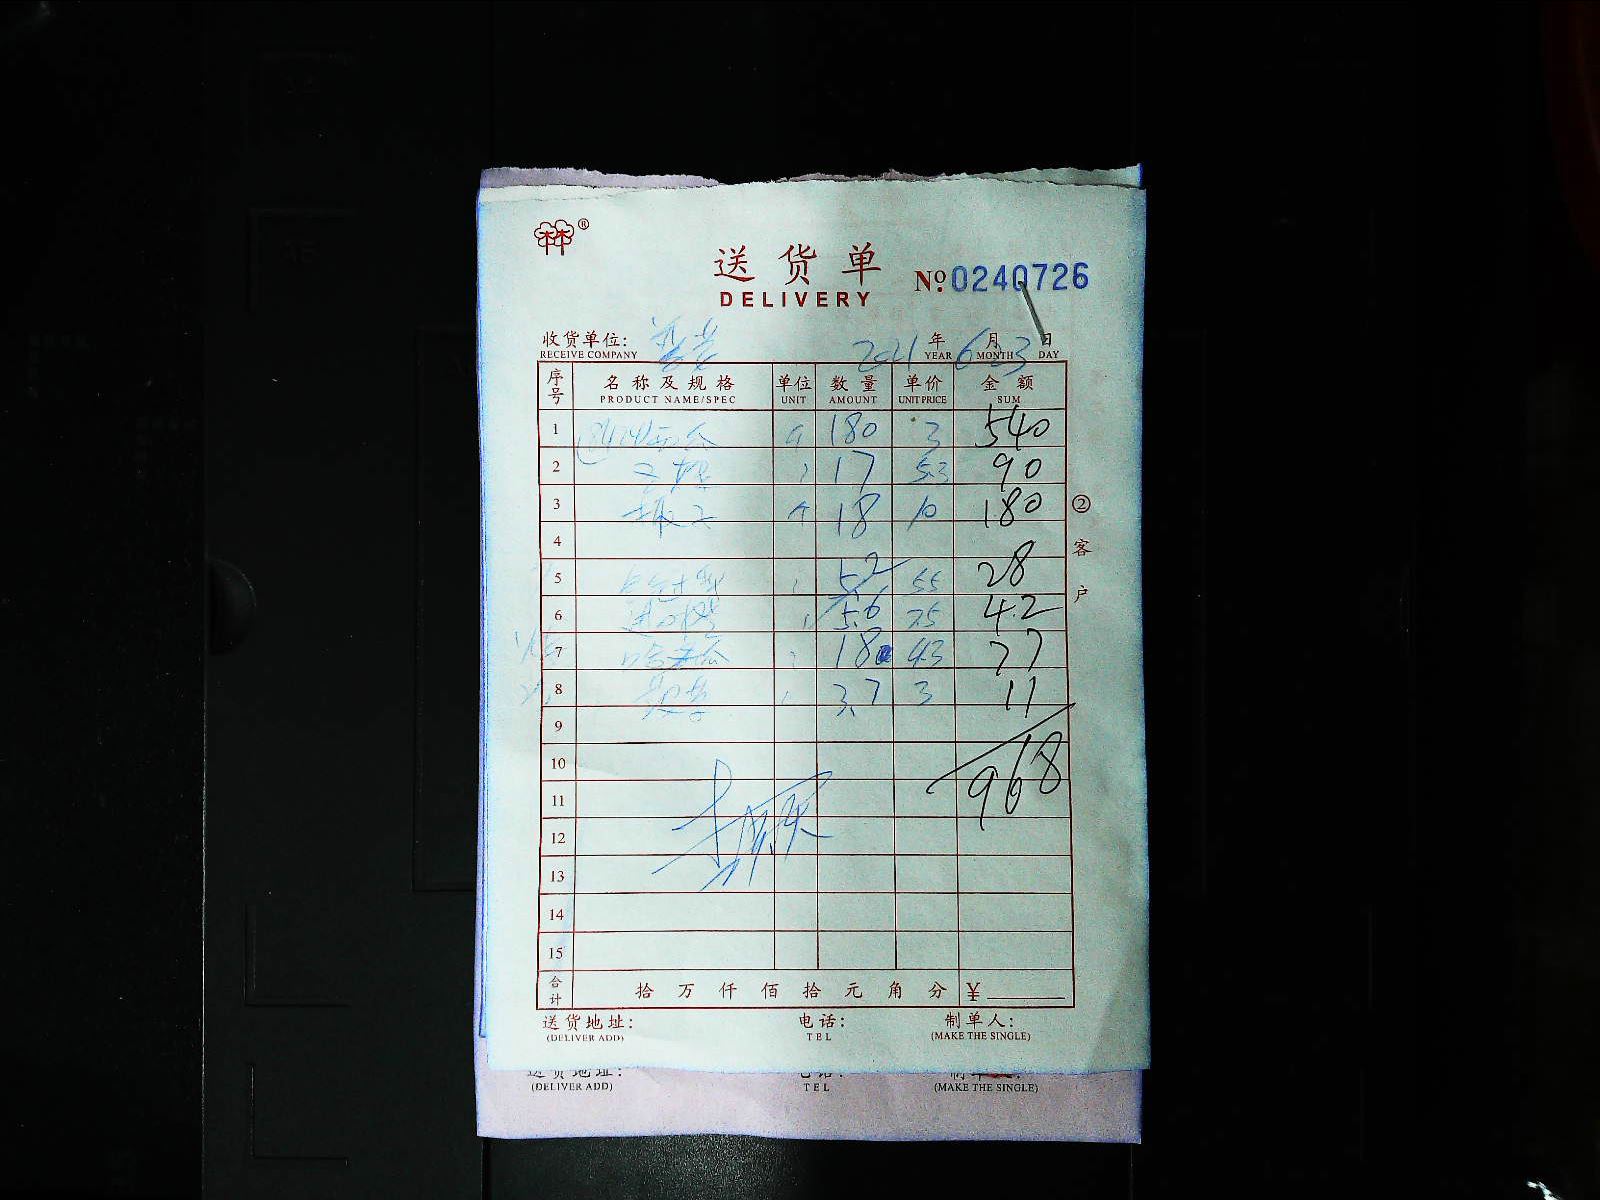 林®
送货单
DELIVERY
№ 0240726
收货单位: 2021年6月23日
RECEIVE COMPANY YEAR MONTH DAY
序号 名称及规格 单位 数量 单价 金额
PRODUCT NAME/SPEC UNIT AMOUNT UNIT PRICE SUM
1 (8424)西瓜 个 180 3 540
2 17 5.3 90
3 个 18 10 180
4
5 5.2 5.5 28
6 5.6 7.5 42
7 哈密瓜 18 4.3 77
8 3.7 3 11
9
10 968
11
12
13
14
15
合计 拾万仟佰拾元角分 ¥
②客户
送货地址: 电话: 制单人:
(DELIVER ADD) TEL (MAKE THE SINGLE)
送货地址: 电话: 制单人:
(DELIVER ADD) TEL (MAKE THE SINGLE)